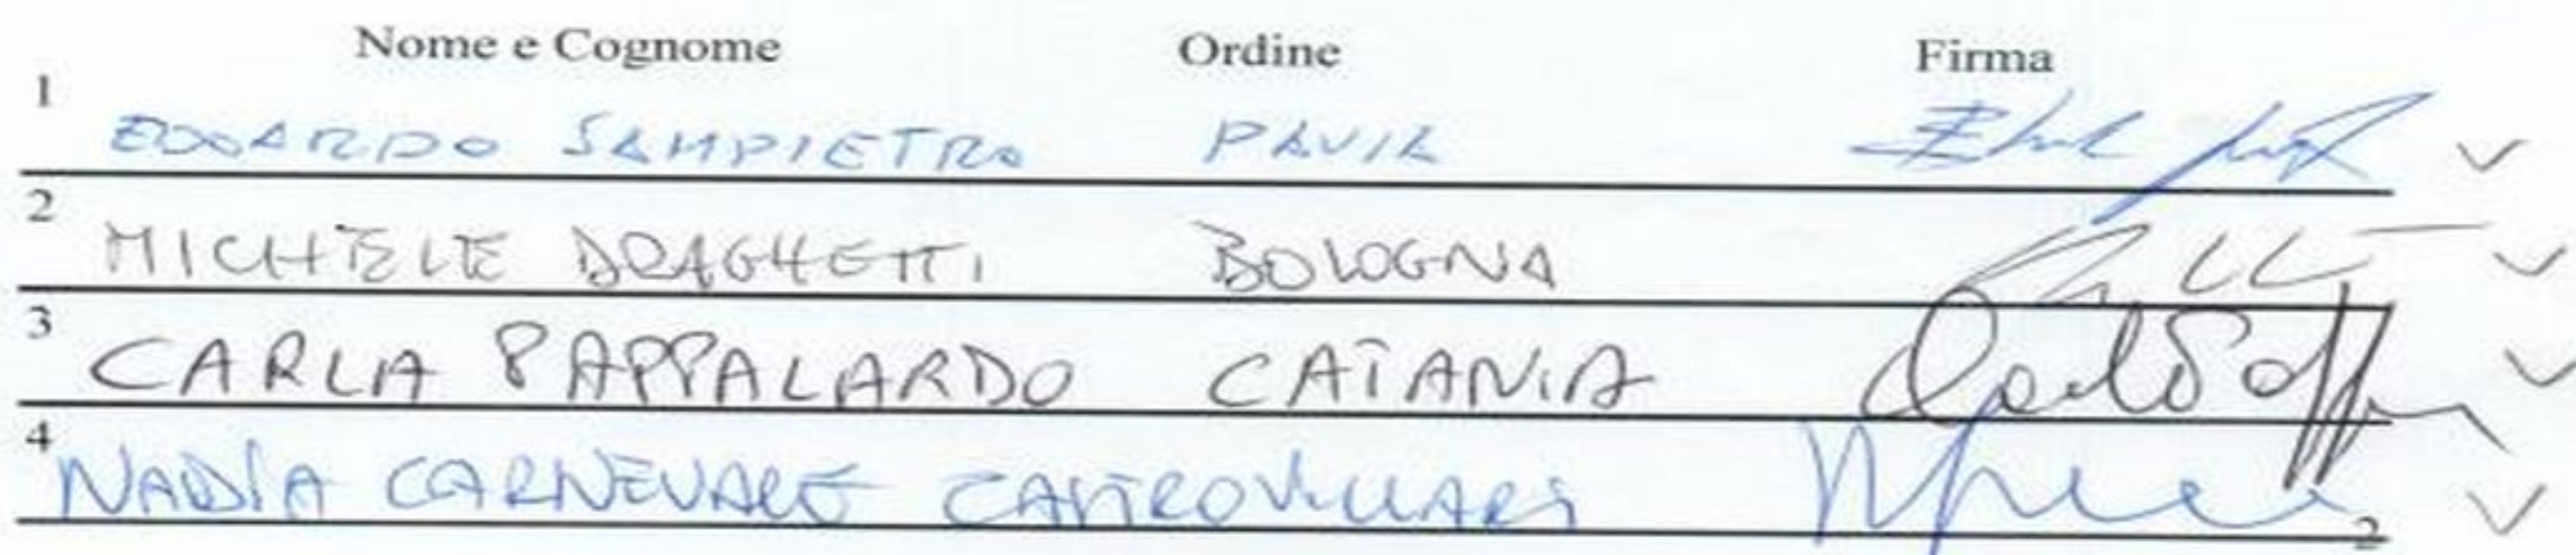 Nome e Cognome Ordine Firma
1 EDOARDO SAMPIETRO PAVIA
2 MICHELE DRAGHETTI BOLOGNA
3 CARLA PAPPALARDO CATANIA
4 NADIA CARNEVALE CASTROVILLARI
2